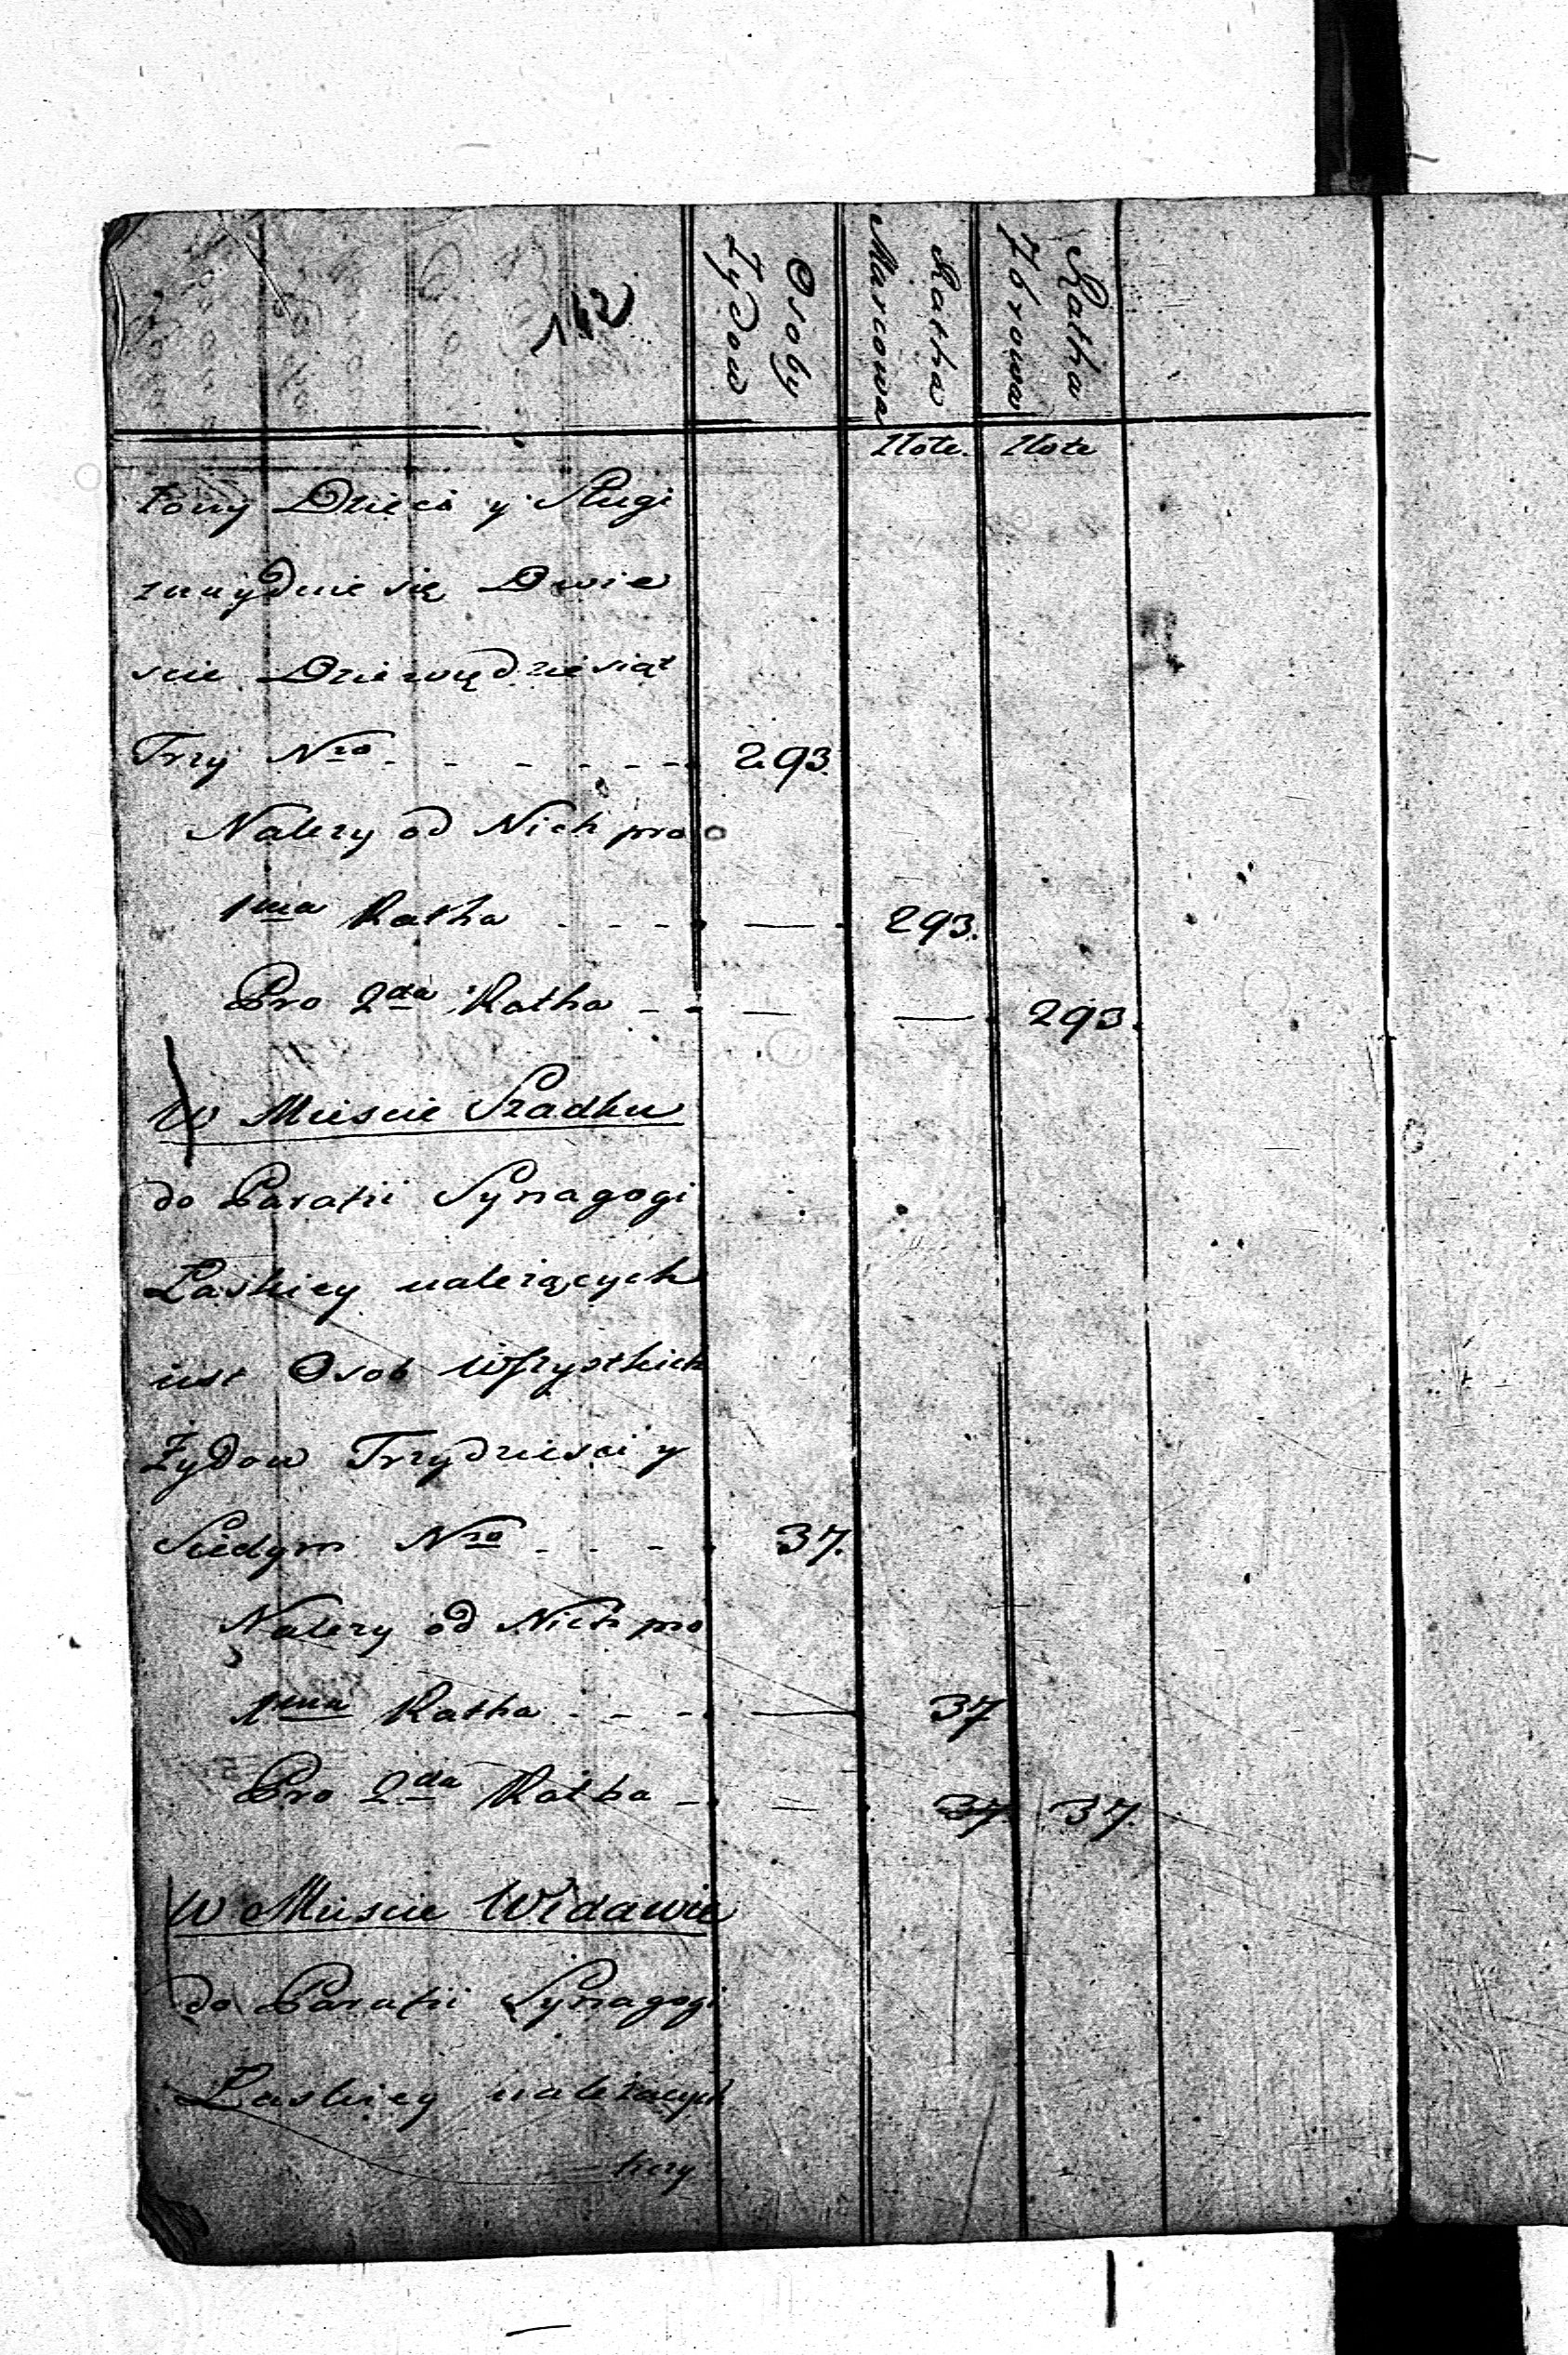 142
Osoby Zydow
Ratha Marcowa
Ratha 7browa
Złote. Złote
Dzieci y Sługi
znaydzie się Dwie
scie Dziewędziesiąt
Trzy Nro - - - - - - 293.
Nalezy od Nich pro
1ma Ratha - - - — 293.
Pro 2da Ratha - - — — 293.
W Miescie Szadku
do Parafii Synagogi
Łaskiey należących
iest Osob Wszystkich
Żydow Trzydziesci y
Siedym Nro - - - 37.
Nalezy od Nich pro
1ma Ratha - - - — 37
Pro 2da Ratha - — 37. 37.
W Miescie Widawie
do Parafii Synagogi
Łaskiey należących
liczy